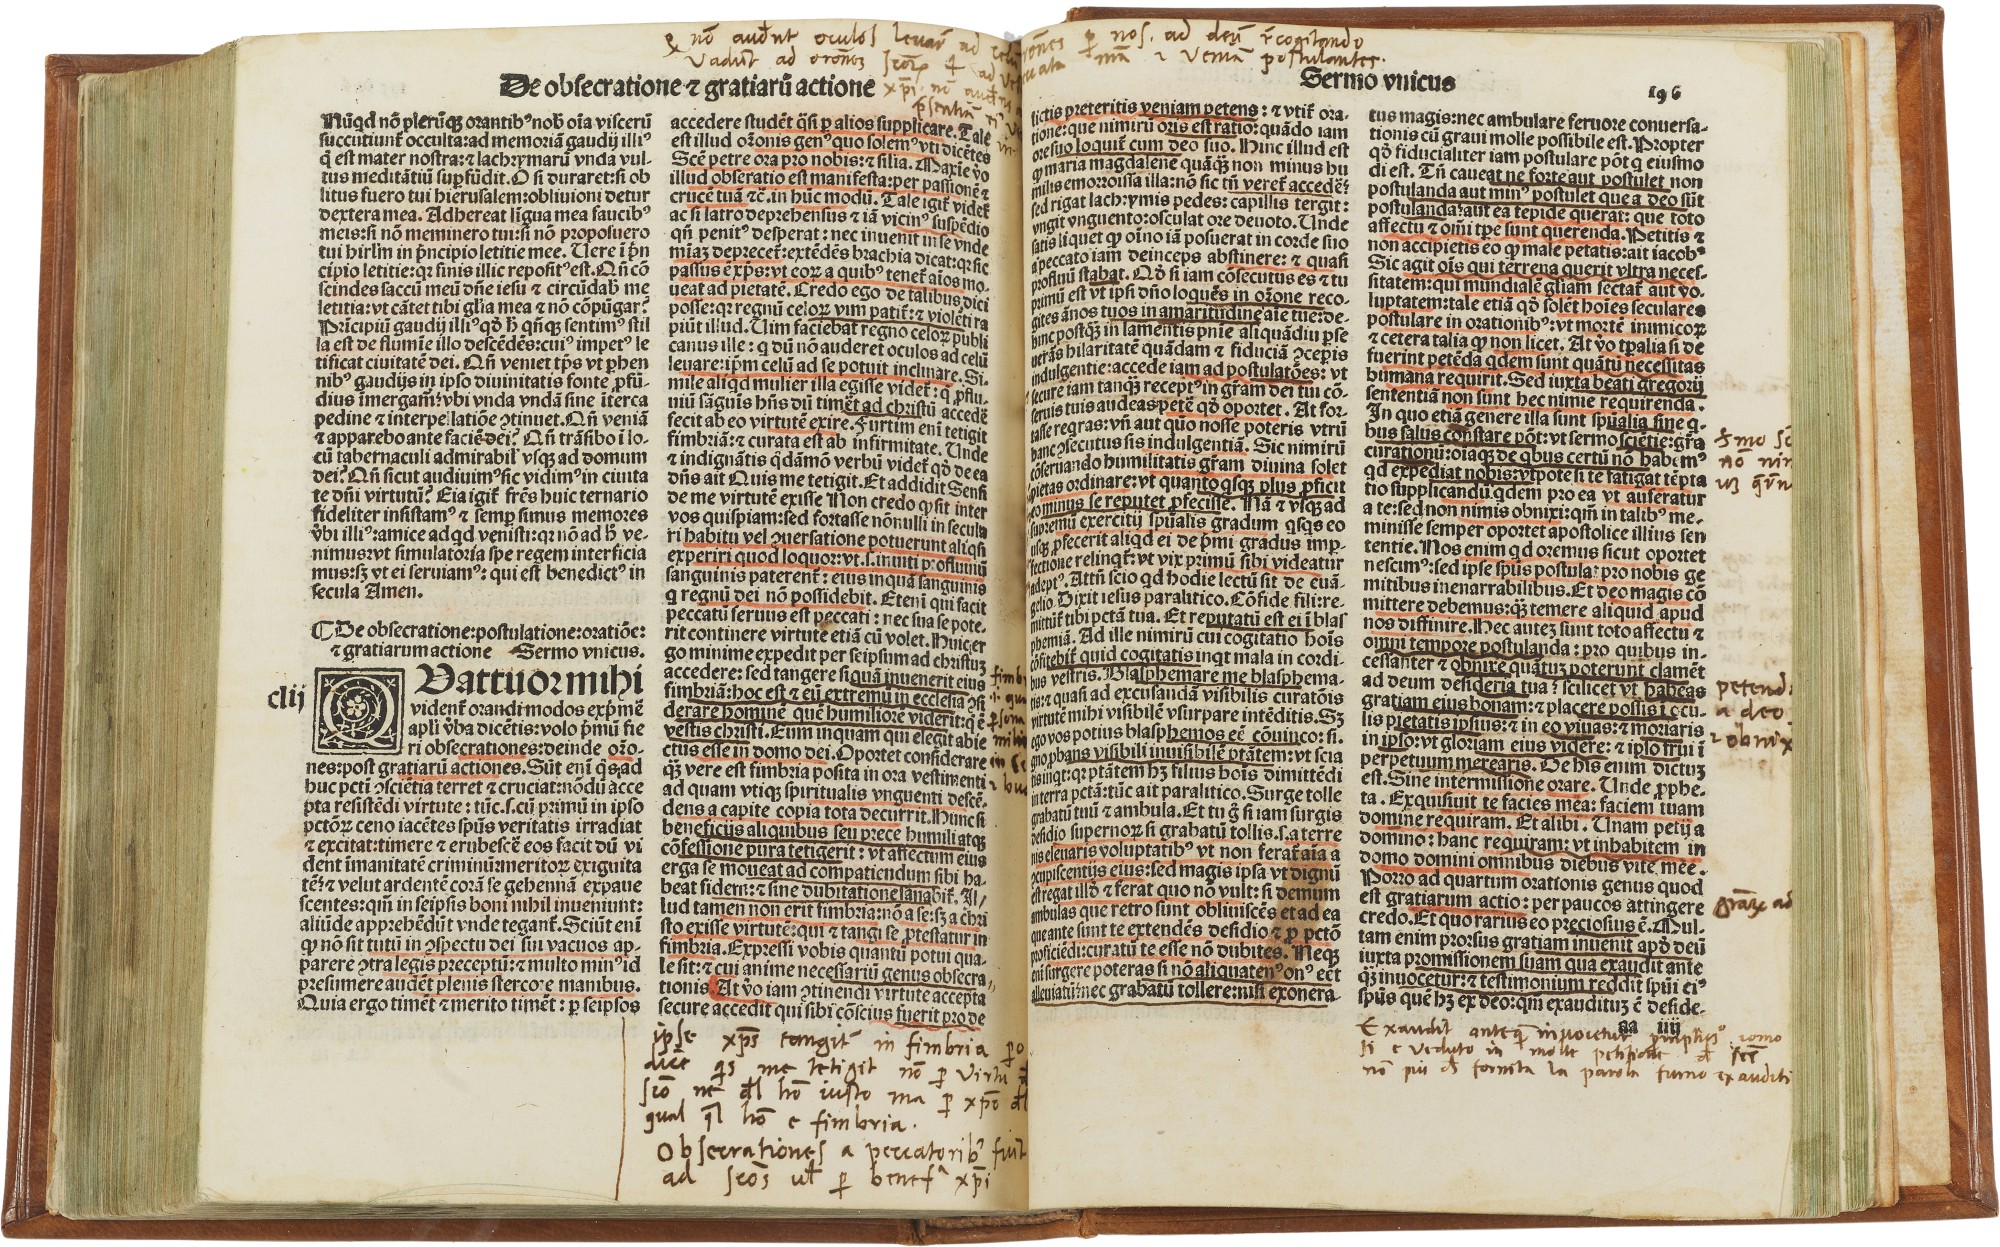 De obsecratione ⁊ gratiarū actione
Nūqd nō plerūqꝫ orantibꝰ nob̄ oīa viscerū
succutiunt̄ occulta: ad memoriā gaudij illiꝰ
q̄ est mater nostra: ⁊ lachrymarū vnda vul-
tus meditātiū suꝑfūdit. O si duraret: si ob
litus fuero tui hierusalem: obliuioni detur
dextera mea. Adhereat līgua mea faucibꝰ
meis: si nō meminero tui: si nō proposuero
tui hirl̄m in pͥncipio letitie mee. Uere ī pͥn
cipio letitie: qꝛ finis illic repositꝰ est. Qn̄ cō
scindes saccū meū dn̄e iesu ⁊ circūdab̄ me
letitia: vt cātet tibi gl̄ia mea ⁊ nō cōpūgar?
Prīcipiū gaudij illiꝰ qd̓ h̄ qn̄qꝫ sentimꝰ stil
la est de flumīe illo descēdēs: cuiꝰ impetꝰ le
tificat ciuitatē dei. Qn̄ veniet tp̄s vt ꝓhen
nibꝰ gaudijs in ipso diuinitatis fonte ꝓfū-
dius īmergam̄: vbi vnda vndā sine īterca
pedine ⁊ interpellatiōe ꝯtinuet. Qn̄ veniā
⁊ apparebo ante faciē dei? Qn̄ trāsibo ī lo-
cū tabernaculi admirabilꝭ vsqꝫ ad domum
dei? Qn̄ sicut audiuimꝰ sic vidimꝰ in ciuita
te dn̄i virtutū? Eia igit̄ fr̄es huic ternario
fideliter insistamꝰ ⁊ semꝑ simus memores
v̓bi illiꝰ: amice ad qd venisti: qꝛ nō ad h̄ ve-
nimus: vt simulatoria spe regem interficia
mus: sꝫ vt ei seruiamꝰ: qui est benedictꝰ in
secula Amen.
¶ De obsecratione: postulatione: oratiōe:
⁊ gratiarum actione Sermo vnicus.
clij
QUattuor mihi
vident̄ orandi modos exp̄mē
apl̓i v̓ba dicētis: volo pͥmū fie
ri obsecrationes: deinde or̄o-
nes: post gratiarū actiones. Sūt eni᷄ qs̄ ad
huc pct̄i ꝯsciētia terret ⁊ cruciat: nōdū acce
pta resistēdi virtute: tūc .s. cū primū in ipso
pctōꝝ ceno iacētes spūs veritatis irradiat
⁊ excitat: timere ⁊ erubescē eos facit dū vi
dent īmanitatē criminū: meritoꝝ exiguita
tē: ⁊ velut ardentē corā se gehennā expaue
scentes: qm̄ in seipsis boni nihil inueniunt:
aliūde apprehēdūt vnde tegant̄. Sciūt eni᷄
ꝙ nō sit tutū in ꝯspectu dei sui vacuos ap-
parere ꝯtra legis preceptū: ⁊ multo minꝰ id
presumere audēt plenis stercore manibus.
Quia ergo timēt ⁊ merito timēt: ꝑ seipsos
accedere studēt qͥsi ꝑ alios supplicare. Tale
est illud or̄onis genꝰ quo solemꝰ vti dicētes
Scē petre ora pro nobis: ⁊ silia. Maxīe v̓o
illud obseratio est manifesta: per passionē ⁊
crucē tuā ⁊c̄. in hūc modū. Tale igit̄ videt̄
ac si latro deprehensus ⁊ iā vicinꝰ suspēdio
qn̄ penitꝰ desperat: nec inuenit in se vnde
miaꝫ deprecet̄: extēdēs brachia dicat: qꝛ sic
passus ē xp̄s: vt coꝝ a quibꝰ tenet̄ aīos mo-
ueat ad pietatē. Credo ego de talibus dici
posse: qꝛ regnū celoꝝ vim patit̄: ⁊ violēti ra
piūt illud. Uim faciebat regno celoꝝ publi
canus ille: q dū nō auderet oculos ad celū
leuare: ip̄m celū ad se potuit inclinare. Si-
mile aliqd mulier illa egisse videt̄: q ꝓflu-
niū sāguīs hn̄s dū timēt ad christū accedē
fecit ab eo virtutē exire. Furtim eni᷄ tetigit
fimbriā: ⁊ curata est ab infirmitate. Unde
⁊ indignātis qdāmō verbū videt̄ qd̓ de ea
dn̄s ait Quis me tetigit. Et addidit Sensi
de me virtutē exisse Non credo ꝙ sit inter
vos quispiam: sed fortasse nōnulli in secula
ri habitu vel ꝯuersatione potuerunt aliqsi
experiri quod loquor: vt .s. inuiti ꝓfluuiū
sanguinis paterent̄: eius inquā sanguinis
q regnū dei nō possidebit. Eteni᷄ qui facit
peccatū seruus est peccati: nec sua se pote-
rit continere virtute etiā cū volet. Huic er
go minime expedit per seipsum ad christuꝫ
accedere: sed tangere si quā inuenerit eius
fimbriā: hoc est ⁊ eū extremū in ecclesia ꝯsi
derare hominē quē humiliorē viderit: q ē
vestis christi. Eum inquam qui elegit abie
ctus esse in domo dei. Oportet considerare
qꝫ vere est fimbria posita in ora vestimenti
ad quam vtiqꝫ spiritualis vnguenti descē-
dens a capite copia tota decurrit. Hunc si
beneficijs aliquibus seu prece humili atqꝫ
cōfessione pura tetigerit: vt affectum eius
erga se moueat ad compatiendum sibi ha-
beat fidem: ⁊ sine dubitatione sanabit̄. Il-
lud tamen non erit fimbria: nō a se: sꝫ a chri
sto exisse virtutē: qui ⁊ tangi se ꝓtestatur in
fimbria. Expressi vobis quantū potui qua-
le sit: ⁊ cui anime necessariū genus obsecra-
tionis. At v̓o iam ꝯtinendi virtute accepta
secure accedit qui sibi cōscius fuerit pro de
ipse xp̄s tangit̄ in fimbria
qual ho e fimbria.
Obsecrationes a peccatoribꝰ fiūt
Sermo vnicus
196
lictis preteritis veniam petens: ⁊ vtit̄ ora-
tione: que nimirū oris est ratio: quādo iam
ore suo loquit̄ cum deo suo. Hinc illud est
ꝙ maria magdalene quāqꝫ non minus hu
milis emorroissa illa: nō sic tn̄ veret̄ accedē:
sed rigat lachrymis pedes: capillis tergit:
vngit vnguento: osculat̄ ore deuoto. Unde
satis liquet ꝙ oīno iā posuerat in corde suo
a peccato iam deinceps abstinere: ⁊ quasi
profluuiū stabat. Qd̓ si iam cōsecutus es ⁊ tu
primū est vt ipsi dn̄o loquēs in or̄one reco-
gites ānos tuos in amaritudine aīe tue: de-
hinc postqꝫ in lamentis pnīe aliquādiu ꝑse
uerās hilaritatē quādam ⁊ fiduciā ꝯceperis
indulgentie: accede iam ad postulatōes: vt
secure iam tanqꝫ receptꝰ in gr̄am dei tui cō-
seruis tuis audeas petē qd̓ oportet. At for-
tasse regras: vn̄ aut quo nosse poteris vtrū
hanc ꝯsecutus sis indulgentiā. Sic nimirū
cōseruando humilitatis gr̄am diuina solet
pietas ordinare: vt quanto qsqꝫ plus ꝓficit
eo minus se reputet ꝓfecisse. Nā ⁊ vsqꝫ ad
supremū exercitij spūalis gradum qsqs eo
usqꝫ ꝓfecerit aliqd ei de pͥmi gradus imꝑ-
fectione relinqt̄: vt vix primū sibi videatur
adeptꝰ. Attn̄ scio qd hodie lectū sit de euā-
gelio. Dixit iesus paralitico. Cōfide fili: re-
mittūt̄ tibi pctā tua. Et reputatū est ei ī blas
phemiā. Ad ille nimirū cui cogitatio hoīs
cōfitebit̄ quid cogitatis inqt mala in cordi-
bus vestris. Blasphemare me blasphema-
tis: ⁊ quasi ad excusandā visibilis curatōis
virtutē mihi visibilē vsurpare intēditis. Sꝫ
ego vos potius blasphemos eē cōuinco: si-
gno ꝓbans visibili inuisibilē ptātem: vt scia
tis inqt: qꝛ ptātem hꝫ filius hoīs dimittēdi
in terra pctā: tūc ait paralitico. Surge tolle
grabatū tuū ⁊ ambula. Et tu ḡ si iam surgis
desidio supernoꝝ si grabatū tollis .s. a terre
nis eleuaris voluptatibꝰ vt non ferat̄ aīa a
ꝯcupiscentijs eius: sed magis ipsa vt dignū
est regat illd̓ ⁊ ferat quo nō vult: si demum
ambulas que retro sunt obliuiscēs et ad ea
que ante sunt te extendēs desidio ⁊ ꝓ pctō
proficiēdi: curatū te esse nō dubites. Neqꝫ
eni᷄ surgere poteras si nō aliquatenꝰ onꝰ eēt
alleuiatū: nec grabatū tollere: nisi exonera-
tus magis: nec ambulare feruore conuersa-
tionis cū graui molle possibile est. Propter
qd̓ fiducialiter iam postulare pōt q eiusmo
di est. Tn̄ caueat ne forte aut postulet non
postulanda aut minꝰ postulet que a deo sūt
postulanda: aut ea tepide querat: que toto
affectu ⁊ oī tp̄e sunt querenda. Petitis ⁊
non accipietis eo ꝙ male petatis: ait iacobꝰ
Sic agit oīs qui terrena querit vltra neces-
sitatem: qui mundialē gliam sectat̄ aut vo-
luptatem: tale etiā qd̓ solēt hoīes seculares
postulare in orationibꝰ: vt mortē inimicoꝝ
⁊ cetera talia qꝫ non licet. At v̓o tp̄alia si de
fuerint petēda qdem sunt quātū necessitas
humana requirit. Sed iuxta beati gregorij
sententiā non sunt hec nimie requirenda.
In quo etiā genere illa sunt spūalia sine q-
bus salus constare pōt: vt sermo sciētie: gr̄a
curationū: oīaqꝫ de qbus certū nō habemꝰ
qd expediat nobis: vtpote si te fatigat tēpta
tio supplicandū qdem pro ea vt auferatur
a te: sed non nimis obnixi: qm̄ in talibꝰ me-
minisse semper oportet apostolice illius sen
tentie. Nos enim qd oremus sicut oportet
nescimꝰ: sed ipse spūs postulat pro nobis ge
mitibus inenarrabilibus. Et deo magis cō
mittere debemus: qꝫ temere aliquid apud
nos diffinire. Hec autez sunt toto affectu ⁊
omni tempore postulanda: pro quibus in-
cessanter ⁊ obnixe quātuꝫ poterunt clamēt
ad deum desideria tua: scilicet vt habeas
gratiam eius bonam: ⁊ placere possis ī ocu-
lis pietatis ipsius: ⁊ in eo viuas: ⁊ moriaris
in ipso: vt gloriam eius videre: ⁊ ip̄o frui ī
perpetuum merearis. De his enim dictuꝫ
est. Sine intermissione orare. Unde ꝓphe-
ta. Exquisiuit te facies mea: faciem tuam
domine requiram. Et alibi. Unam petij a
domino: hanc requiram: vt inhabitem in
domo domini omnibus diebus vite mee.
Porro ad quartum orationis genus quod
est gratiarum actio: per paucos attingere
credo. Et quo rarius eo preciosius ē. Mul-
tam enim prorsus gratiam inuenit apd̓ deū
iuxta promissionem suam qua exaudit ante
qꝫ inuocetur: ⁊ testimonium reddit spūi eiꝰ
spūs quē hꝫ ex deo: qm̄ exaudituꝫ ē deside-
aa iiij